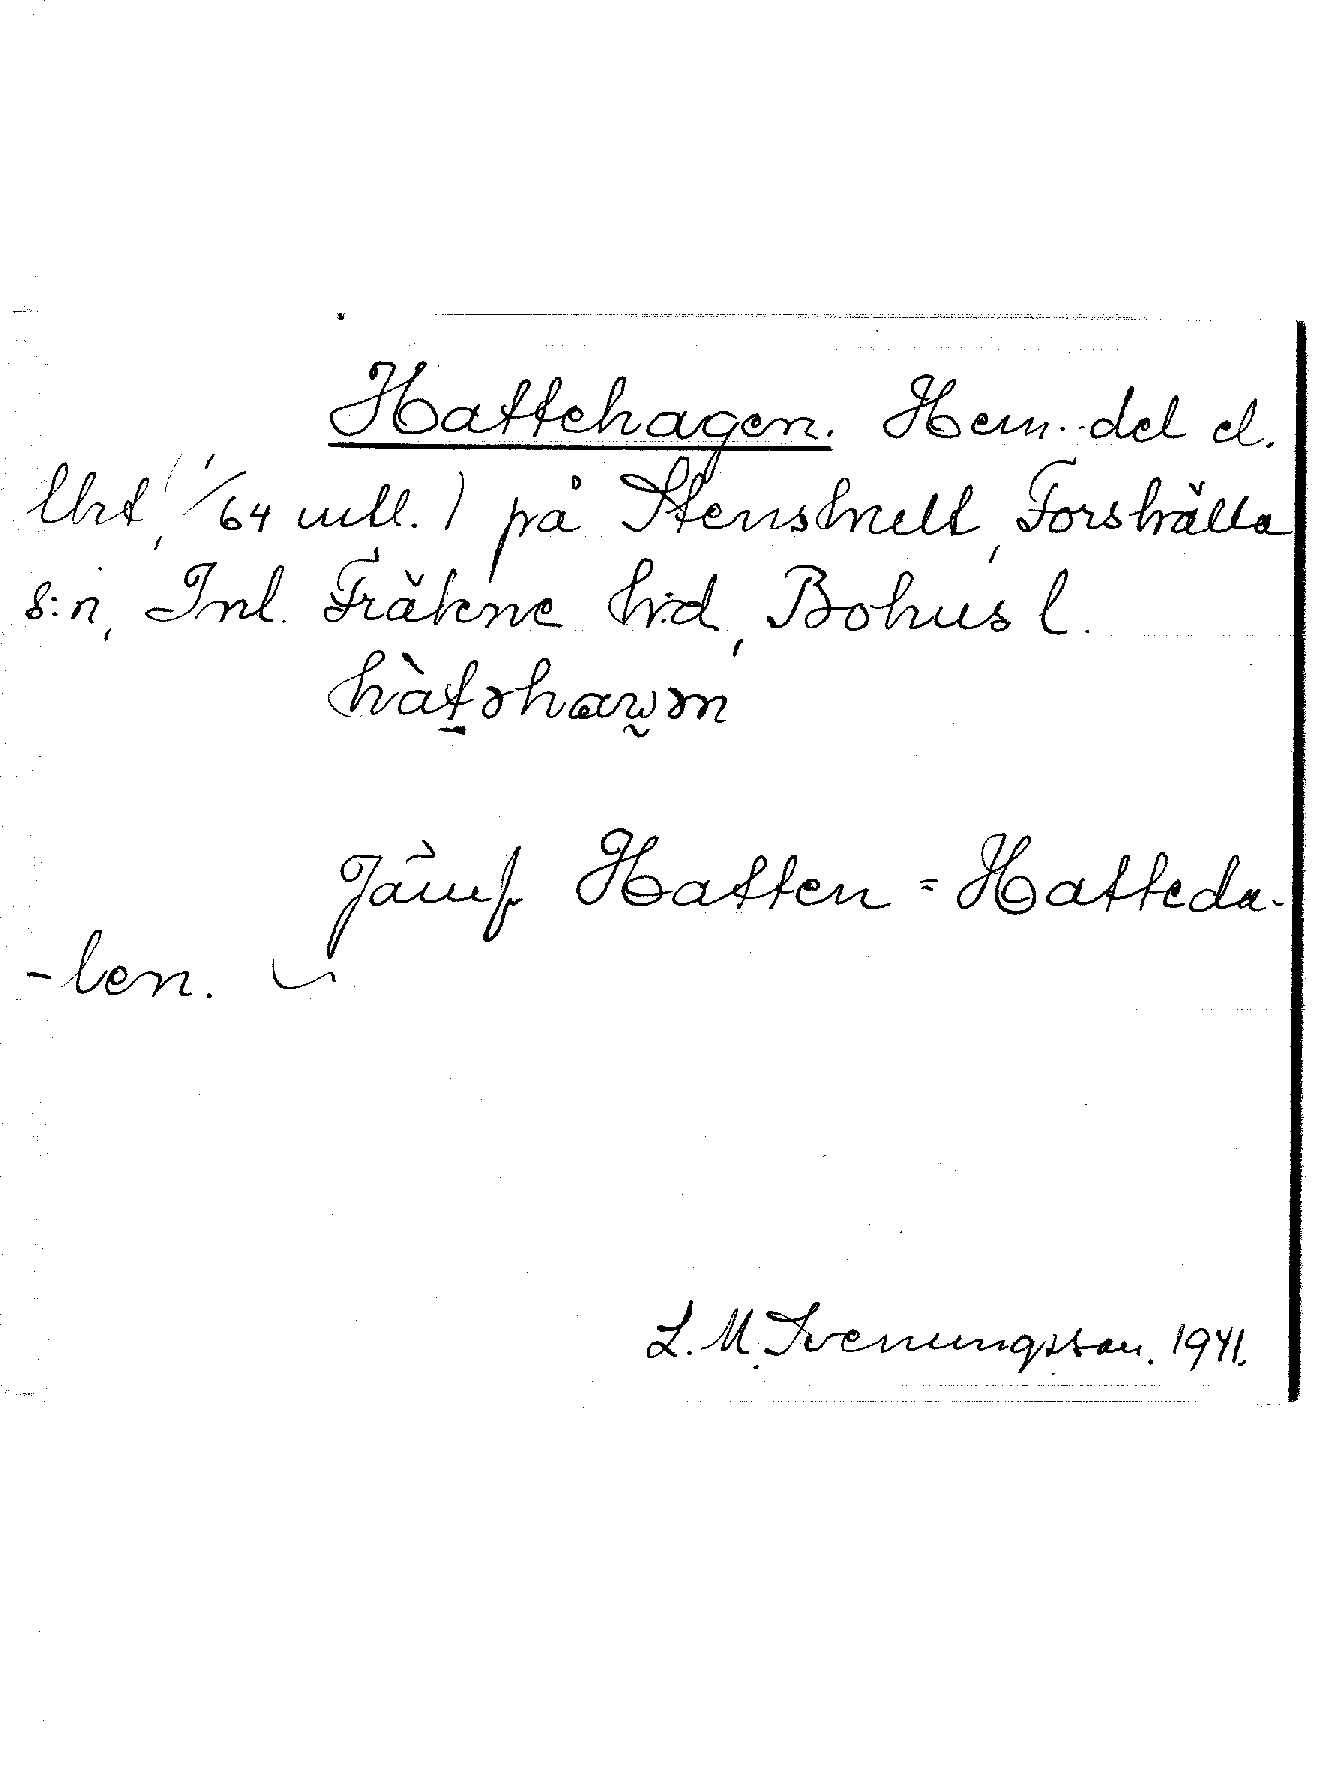 Hattehagen. Hem.-del el.
lht, (1/64 mtl.) på Stenshult, Forshälla
s:n, Inl. Fräkne h:d, Bohusl.
Jämf Hatten = Hatteda-
-len.
L. M. Svenungsson. 1941.